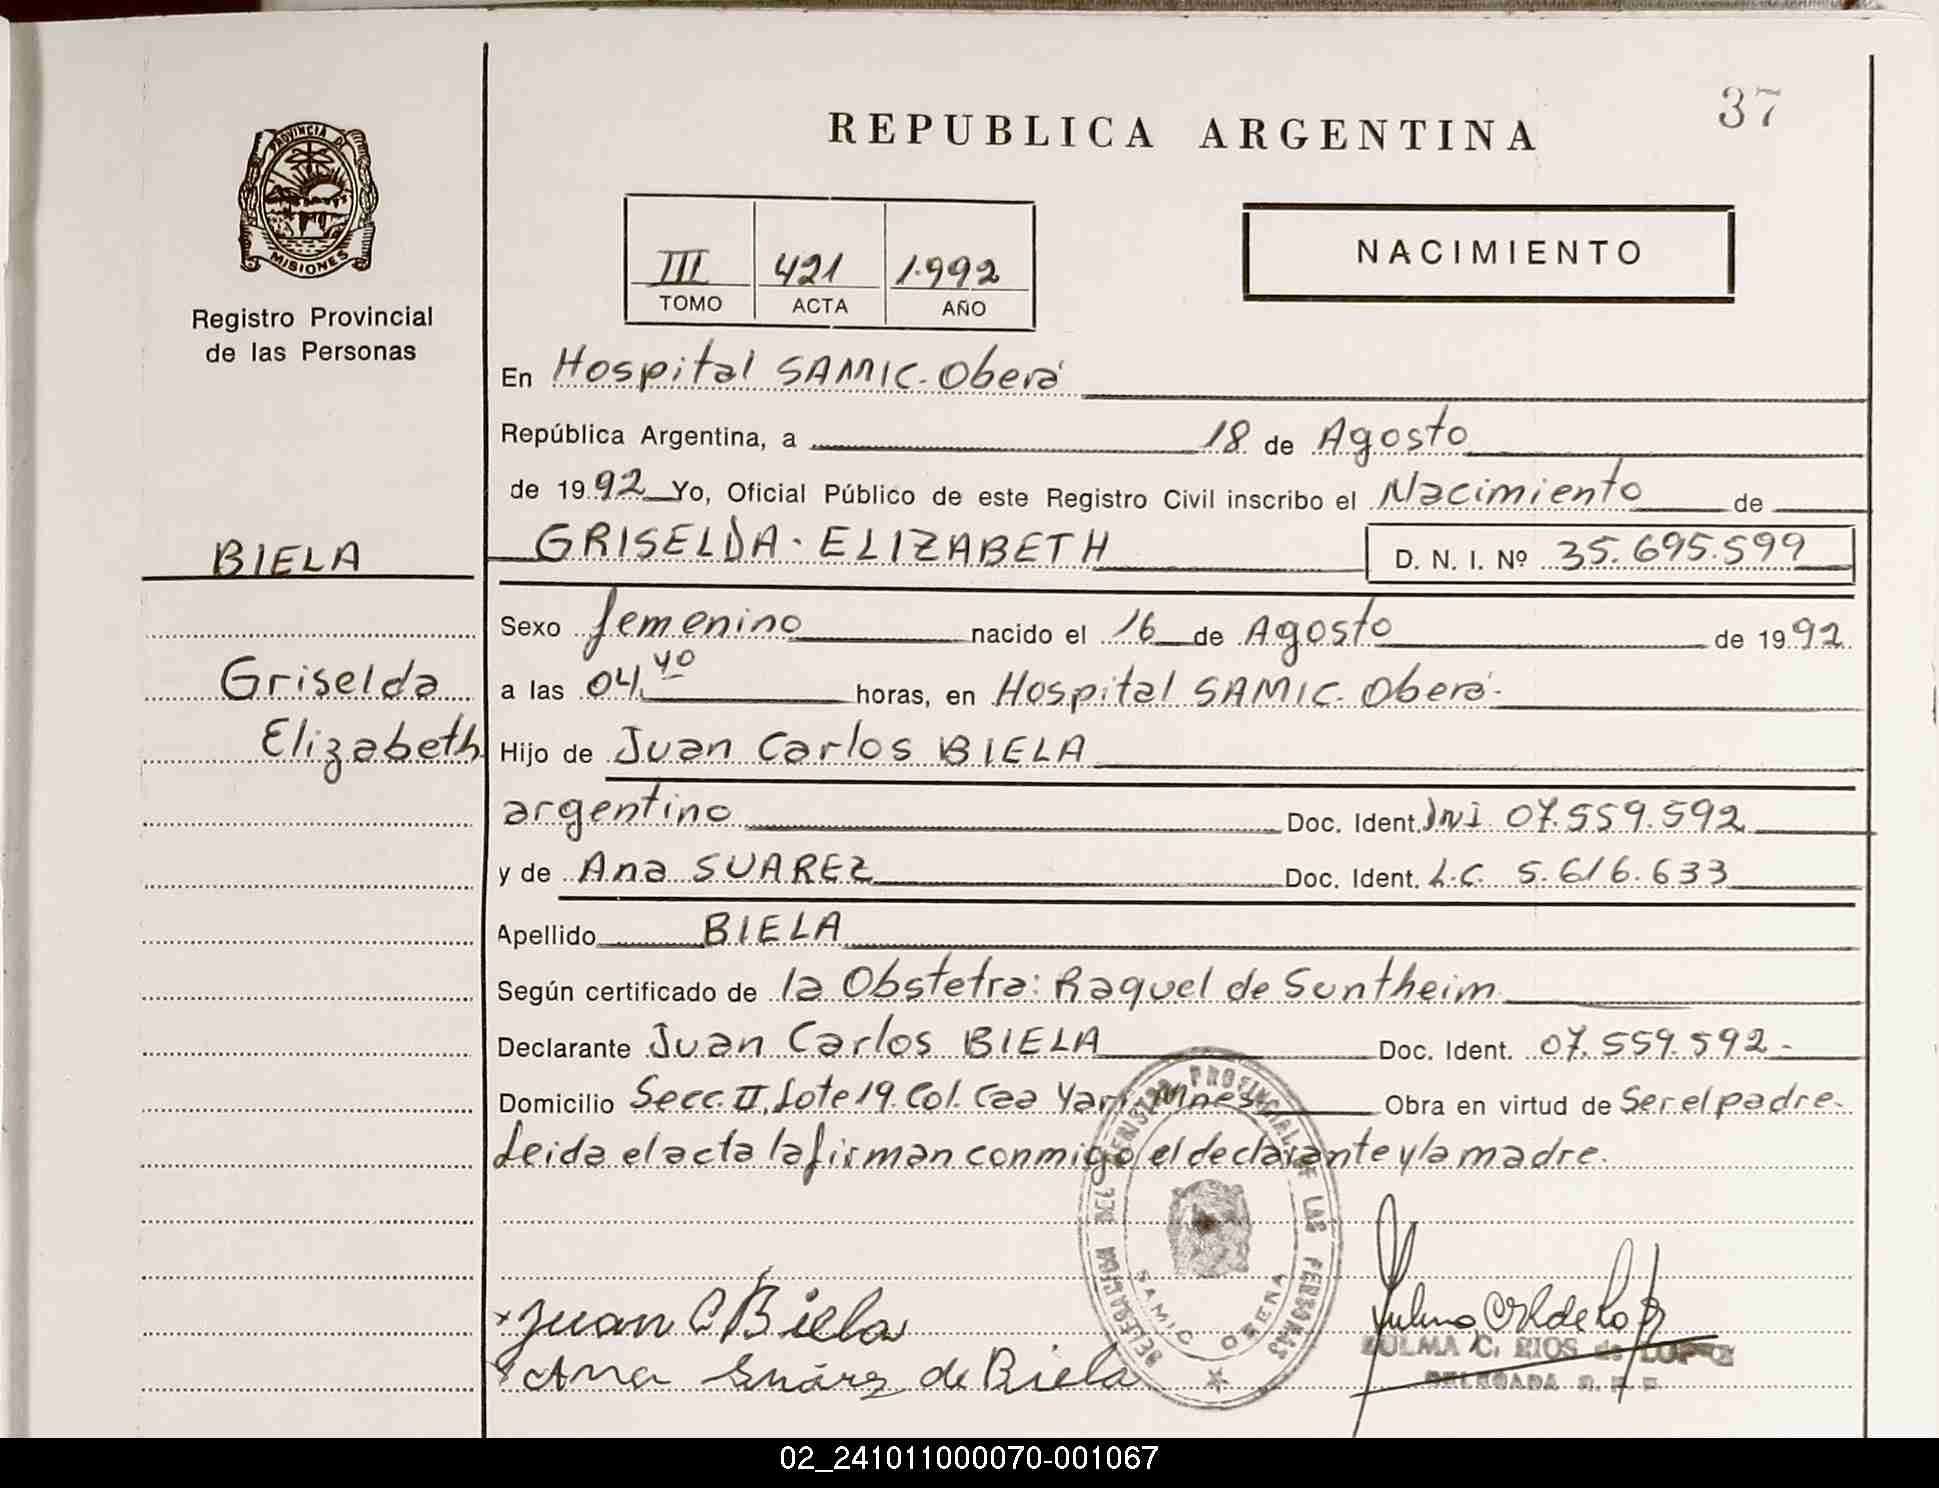 37
REPUBLICA ARGENTINA
PROVINCIA DE
MISIONES
Registro Provincial
de las Personas
III 421 1.992
TOMO ACTA AÑO
NACIMIENTO
En Hospital SAMIC. Oberá
República Argentina, a 18 de Agosto
de 1992 Yo, Oficial Público de este Registro Civil inscribo el Nacimiento de
BIELA
GRISELDA - ELIZABETH D. N. I. Nº 35.695.599
Sexo femenino nacido el 16 de Agosto de 1992
Griselda
a las 04.40 horas, en Hospital SAMIC. Oberá.
Elizabeth
Hijo de Juan Carlos BIELA
argentino Doc. Ident. DNI 07.559.592
y de Ana SUAREZ Doc. Ident. L.C. 5.616.633
Apellido BIELA
Según certificado de la Obstetra: Raquel de Suntheim
Declarante Juan Carlos BIELA Doc. Ident. 07.559.592.-
Domicilio Secc. II, Lote 19. Col. Caa Yari Mnes Obra en virtud de Ser el padre.
Leida el acta la firman conmigo el declarante y la madre.
DELEGACION DEL REGISTRO PROVINCIAL DE LAS PERSONAS
SAMIC OBERA
Juan C Biela
Ana Suárez de Biela
ZULMA C. RIOS de LOPEZ
DELEGADA R. P. P.
02_241011000070-001067